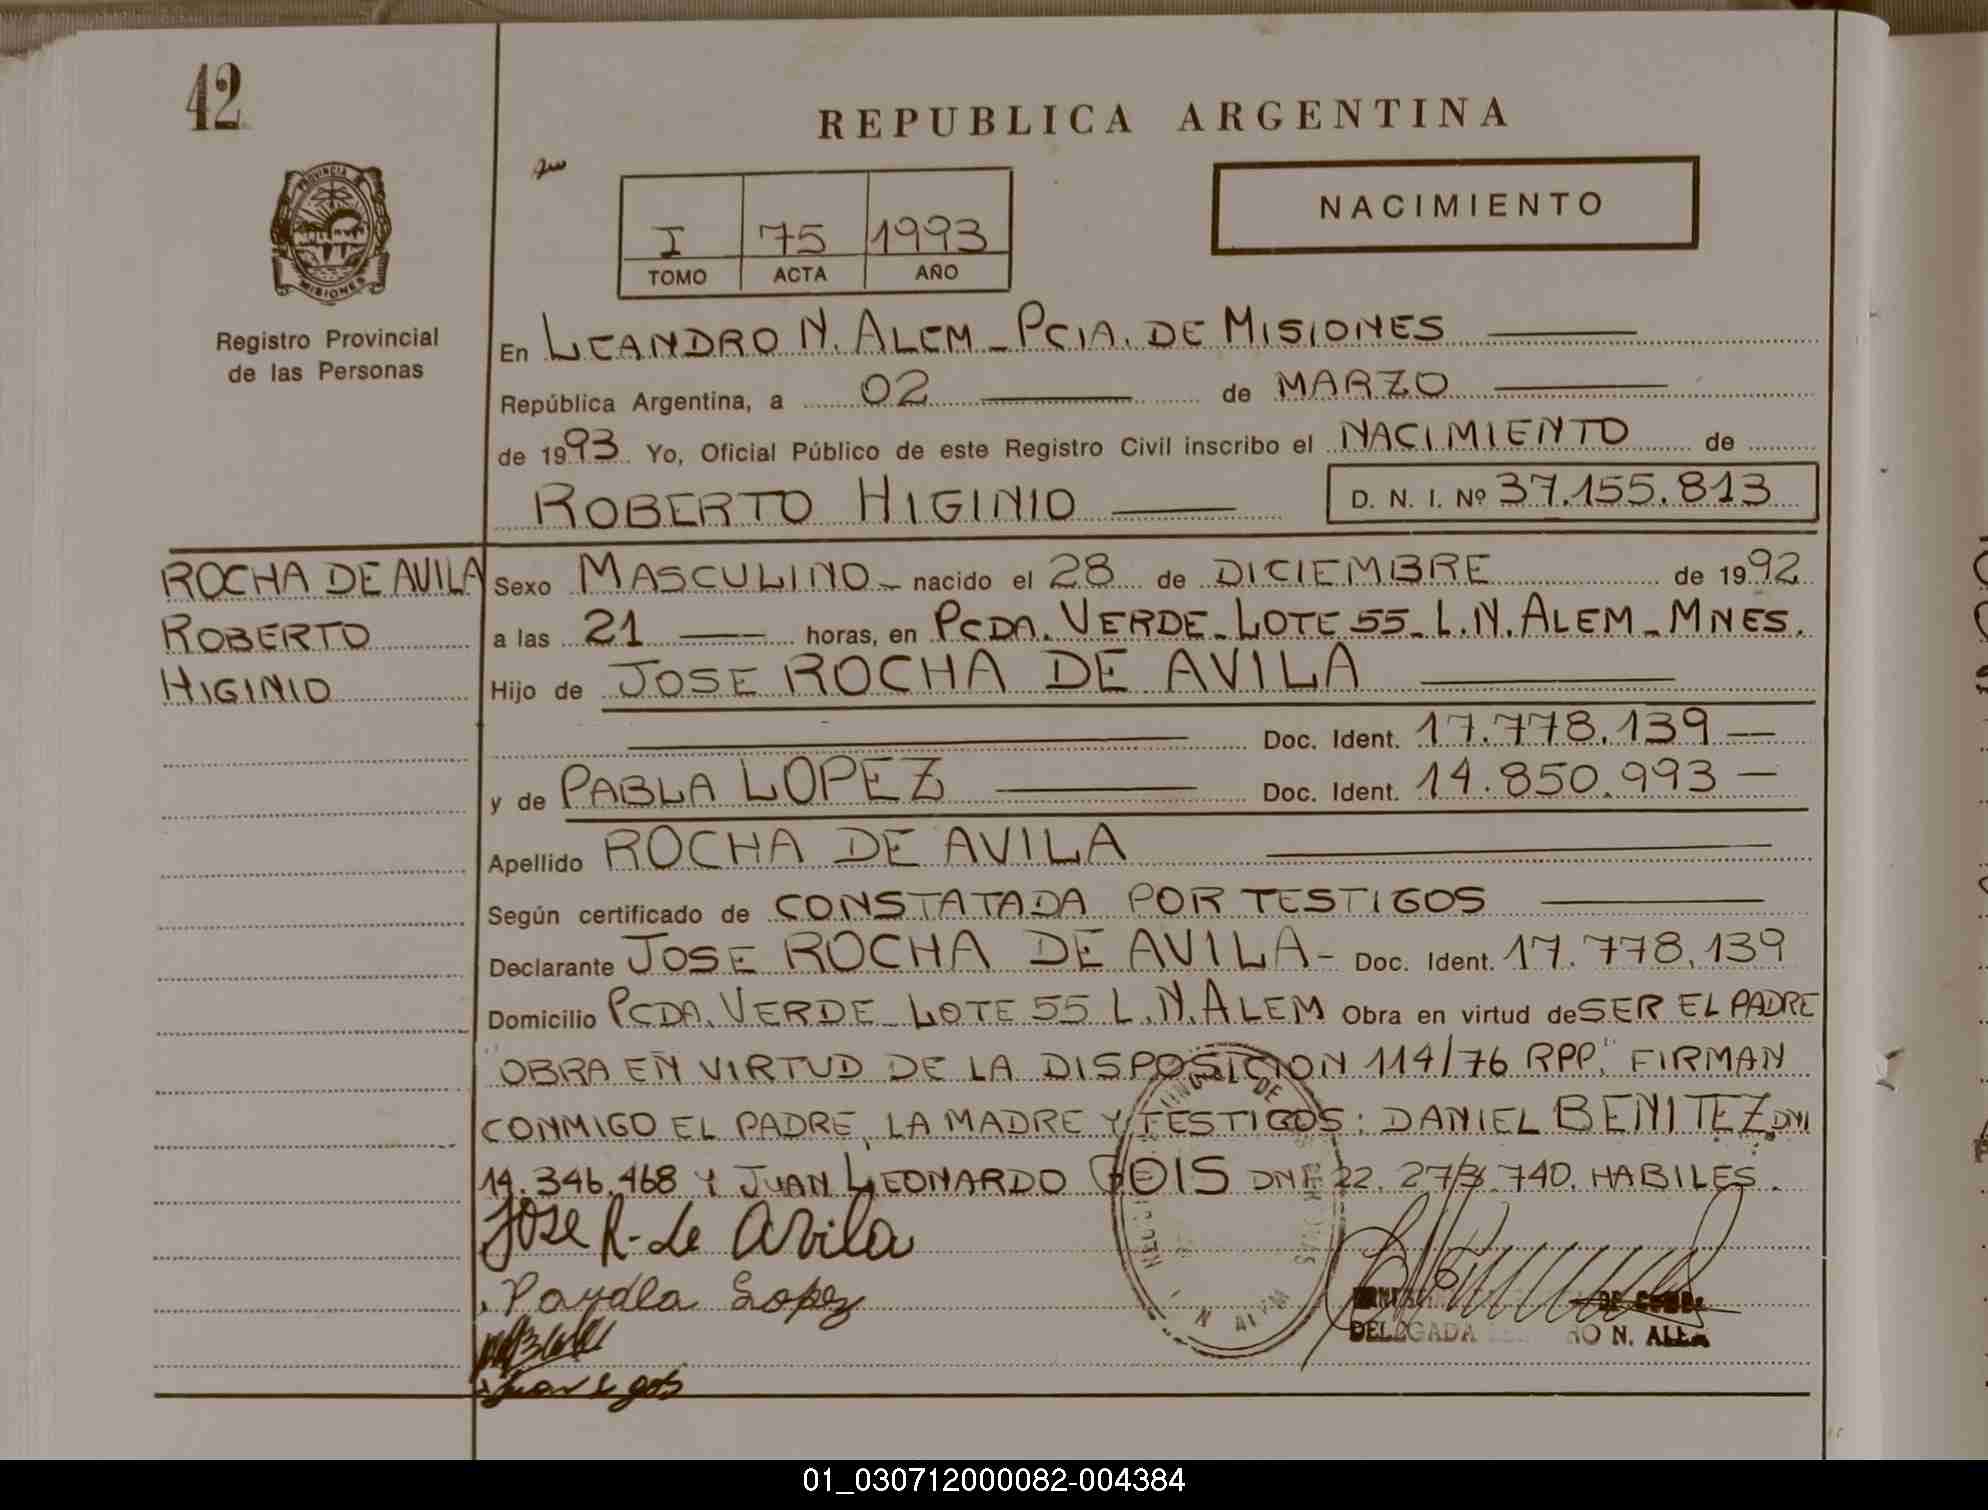 42
REPUBLICA ARGENTINA
PROVINCIA D
MISIONES
Registro Provincial
de las Personas
I 75 1993
TOMO ACTA AÑO
NACIMIENTO
En LEANDRO N. ALEM - PCIA. DE MISIONES
República Argentina, a 02 de MARZO
de 1993 Yo, Oficial Público de este Registro Civil inscribo el NACIMIENTO de
ROBERTO HIGINIO D. N. I. Nº 37.155.813
ROCHA DE AVILA
ROBERTO
HIGINIO
Sexo MASCULINO - nacido el 28 de DICIEMBRE de 1992
a las 21 horas, en PCDA. VERDE - LOTE 55 - L.N. ALEM - MNES.
Hijo de JOSE ROCHA DE AVILA
Doc. Ident. 17.778.139 —
y de PABLA LOPEZ Doc. Ident. 14.850.993 —
Apellido ROCHA DE AVILA
Según certificado de CONSTATADA POR TESTIGOS
Declarante JOSE ROCHA DE AVILA - Doc. Ident. 17.778.139
Domicilio PCDA. VERDE - LOTE 55 L.N. ALEM Obra en virtud de SER EL PADRE
"OBRA EN VIRTUD DE LA DISPOSICION 114/76 RPP." FIRMAN
CONMIGO EL PADRE, LA MADRE Y TESTIGOS: DANIEL BENITEZ DNI
14.346.468 Y JUAN LEONARDO GOIS DNI 22.273.740. HABILES.
JOSE R. de Avila
Lopez
DELEGADA N. ALEM
01_030712000082-004384